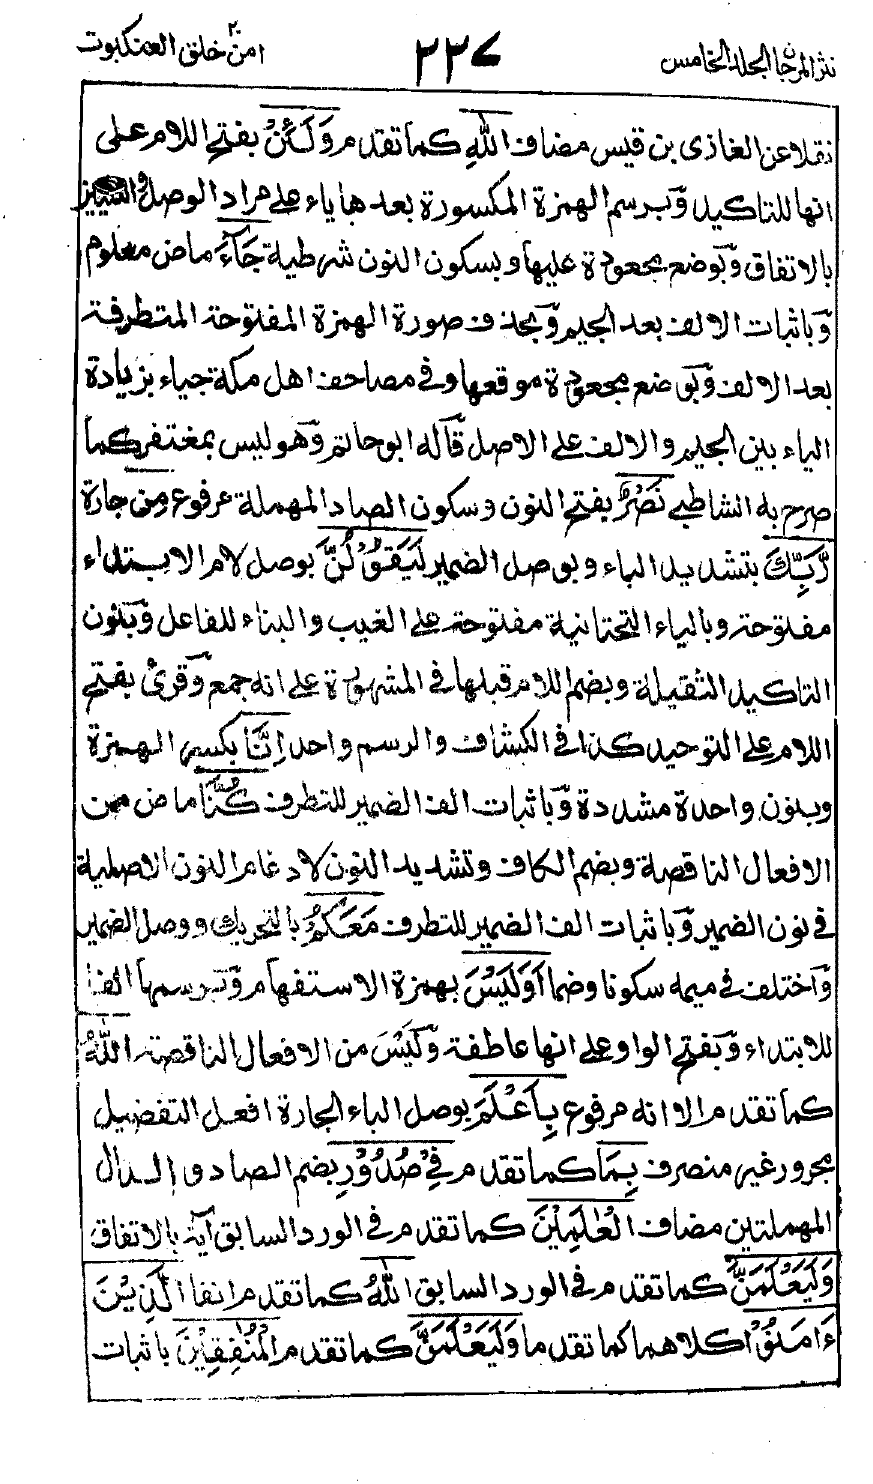 نثر المرجان الجلد الخامس ٢٢٧ امن خلق ٢٠ العنكبوت
نقلا عن الغازى بن قيس مضاف اللهِ كما تقدم وَلَئِنْ بفتح اللام على
انها للتاكيد وَبرسم الهمزة المكسورة بعدها ياء على مراد الوصل والتليين
بالاتفاق وَبوضع مجعودة عليها وبسكون النون شرطية جَآءَ ماض معلوم
وَباثبات الالف بعد الجيم وَبحذف صورة الهمزة المفتوحة المتطرفة
بعد الالف وَبوضع مجعودة موقعها وفى مصاحف اهل مكة جياء بزيادة
الياء بين الجيم والالف على الاصل قاله ابو حاتم وَهو ليس بمغتفر كما
صرح به الشاطبى نَصْرٌ بفتح النون وسكون الصاد المهملة مرفوع مِن جارة
رَّبِّكَ بتشديد الباء وبوصل الضمير لَيَقُوْلُنَّ بوصل لام الابتداء
مفتوحة وبالياء التحتانية مفتوحة على الغيب والبناء للفاعل وَبنون
التاكيد الثقيلة وبضم اللام قبلها فى المشهورة على انه جمع وَقرئ بفتح
اللام على التوحيد كذا فى الكشاف والرسم واحد اِنَّا بكسر الهمزة
وبنون واحدة مشددة وَباثبات الف الضمير للتطرف كُنَّا ماض من
الافعال الناقصة وبضم الكاف وتشديد النون لادغام النون الاصلية
فى نون الضمير وَباثبات الف الضمير للتطرف مَعَكُمْ بالتحريك ووصل الضمير
وَاختلف فى ميمه سكونا وضما اَوَلَيْسَ بهمزة الاستفهام وَبرسمها الفا
للابتداء وَبفتح الواو على انها عاطفة وَلَيْسَ من الافعال الناقصة اللهُ
كما تقدم الا انه مرفوع بِاَعْلَمَ بوصل الباء الجارة افعل التفضيل
مجرور غير منصرف بِمَا كما تقدم فِىْ صُدُوْرِ بضم الصاد والدال
المهملتين مضاف الْعٰلَمِيْنَ كما تقدم فى الورد السابق آية بالاتفاق
وَلَيَعْلَمَنَّ كما تقدم فى الورد السابق اللهُ كما تقدم انفا الَّذِيْنَ
ءَامَنُوْا كلاهما كما تقدما وَلَيَعْلَمَنَّ كما تقدم الْمُنٰفِقِيْنَ باثبات